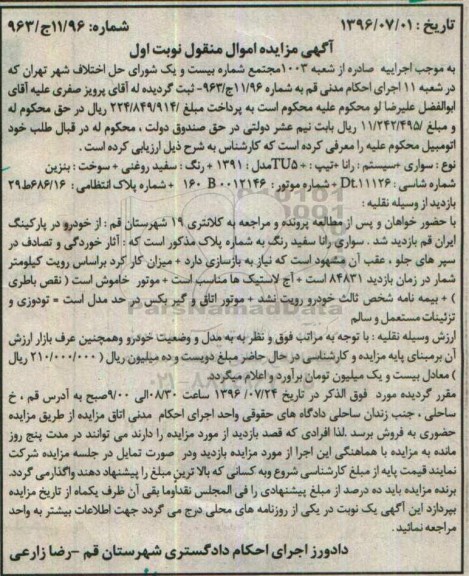 تاریخ : ۱۳۹۶/۰۷/۰۱ شماره: ۱۱/۹۶ج/۹۶۳
آگهی مزایده اموال منقول نوبت اول
به موجب اجراییه صادره از شعبه ۱۰۰۳مجتمع شماره بیست و یک شورای حل اختلاف شهر تهران که
در شعبه ۱۱ اجرای احکام مدنی قم به شماره ۱۱/۹۶ج/۹۶۳- ثبت گردیده له آقای پرویز صفری علیه آقای
ابوالفضل علیرضا لو محکوم علیه محکوم است به پرداخت مبلغ ۲۲۴/۸۴۹/۹۱۴/ ریال در حق محکوم له
و مبلغ ۱۱/۲۴۲/۴۹۵/ ریال بابت نیم عشر دولتی در حق صندوق دولت ، محکوم له در قبال طلب خود
اتومبیل محکوم علیه را معرفی کرده است که کارشناس به شرح ذیل ارزیابی کرده است .
نوع : سواری +سیستم : رانا +تیپ: + TU۵مدل : ۱۳۹۱ + رنگ : سفید روغنی + سوخت : بنزین
شماره شاسی : Dt.۱۱۱۲۶ + شماره موتور : ۱۶۰ B ۰۰۱۲۱۴۶ + شماره پلاک انتظامی : ۶۸۶/۱۶ط۲۹
بازدید از وسیله نقلیه :
با حضور خواهان و پس از مطالعه پرونده و مراجعه به کلانتری ۱۹ شهرستان قم : از خودرو در پارکینگ
ایران قم بازدید شد . سواری رانا سفید رنگ به شماره پلاک مذکور است که : آثار خوردگی و تصادف در
سپر های جلو ، عقب آن مشهود است که نیاز به بازسازی دارد + میزان کار کرد براساس رویت کیلومتر
شمار در زمان بازدید ۸۴۸۳۱ است + آج لاستیک ها مناسب است + موتور خاموش است ( نقص باطری
) + بیمه نامه شخص ثالث خودرو رویت نشد + موتور اتاق و گیر بکس در حد مدل است = تودوزی و
تزئینات مستعمل و سالم
ارزش وسیله نقلیه : با توجه به مراتب فوق و نظر به به مدل و وضعیت خودرو وهمچنین عرف بازار ارزش
آن برمبنای پایه مزایده و کارشناسی در حال حاضر مبلغ دویست و ده میلیون ریال ( ۲۱۰/۰۰۰/۰۰۰ ریال
) معادل بیست و یک میلیون تومان برآورد و اعلام میگردد.
مقرر گردیده مورد فوق الذکر در تاریخ ۱۳۹۶/۰۷/۲۴ ساعت ۰۸/۳۰الی ۹/۰۰صبح به آدرس قم ، خ
ساحلی ، جنب زندان ساحلی دادگاه های حقوقی واحد اجرای احکام مدنی اتاق مزایده از طریق مزایده
حضوری به فروش برسد .لذا افرادی که قصد بازدید از مورد مزایده را دارند می توانند در مدت پنج روز
مانده به مزایده با هماهنگی این اجرا از مورد مزایده بازدید ودر صورت تمایل در جلسه مزایده شرکت
نمایند قیمت پایه از مبلغ کارشناسی شروع وبه کسانی که بالا ترین مبلغ را پیشنهاد دهند واگذارمی گردد.
برنده مزایده باید ده درصد از مبلغ پیشنهادی را فی المجلس نقداوما بقی آن ظرف یکماه از تاریخ مزایده
بپردازد این آگهی یک نوبت در یکی از روزنامه های محلی درج می گردد جهت اطلاعات بیشتر به واحد
مراجعه نمائید .
دادورز اجرای احکام دادگستری شهرستان قم -رضا زارعی